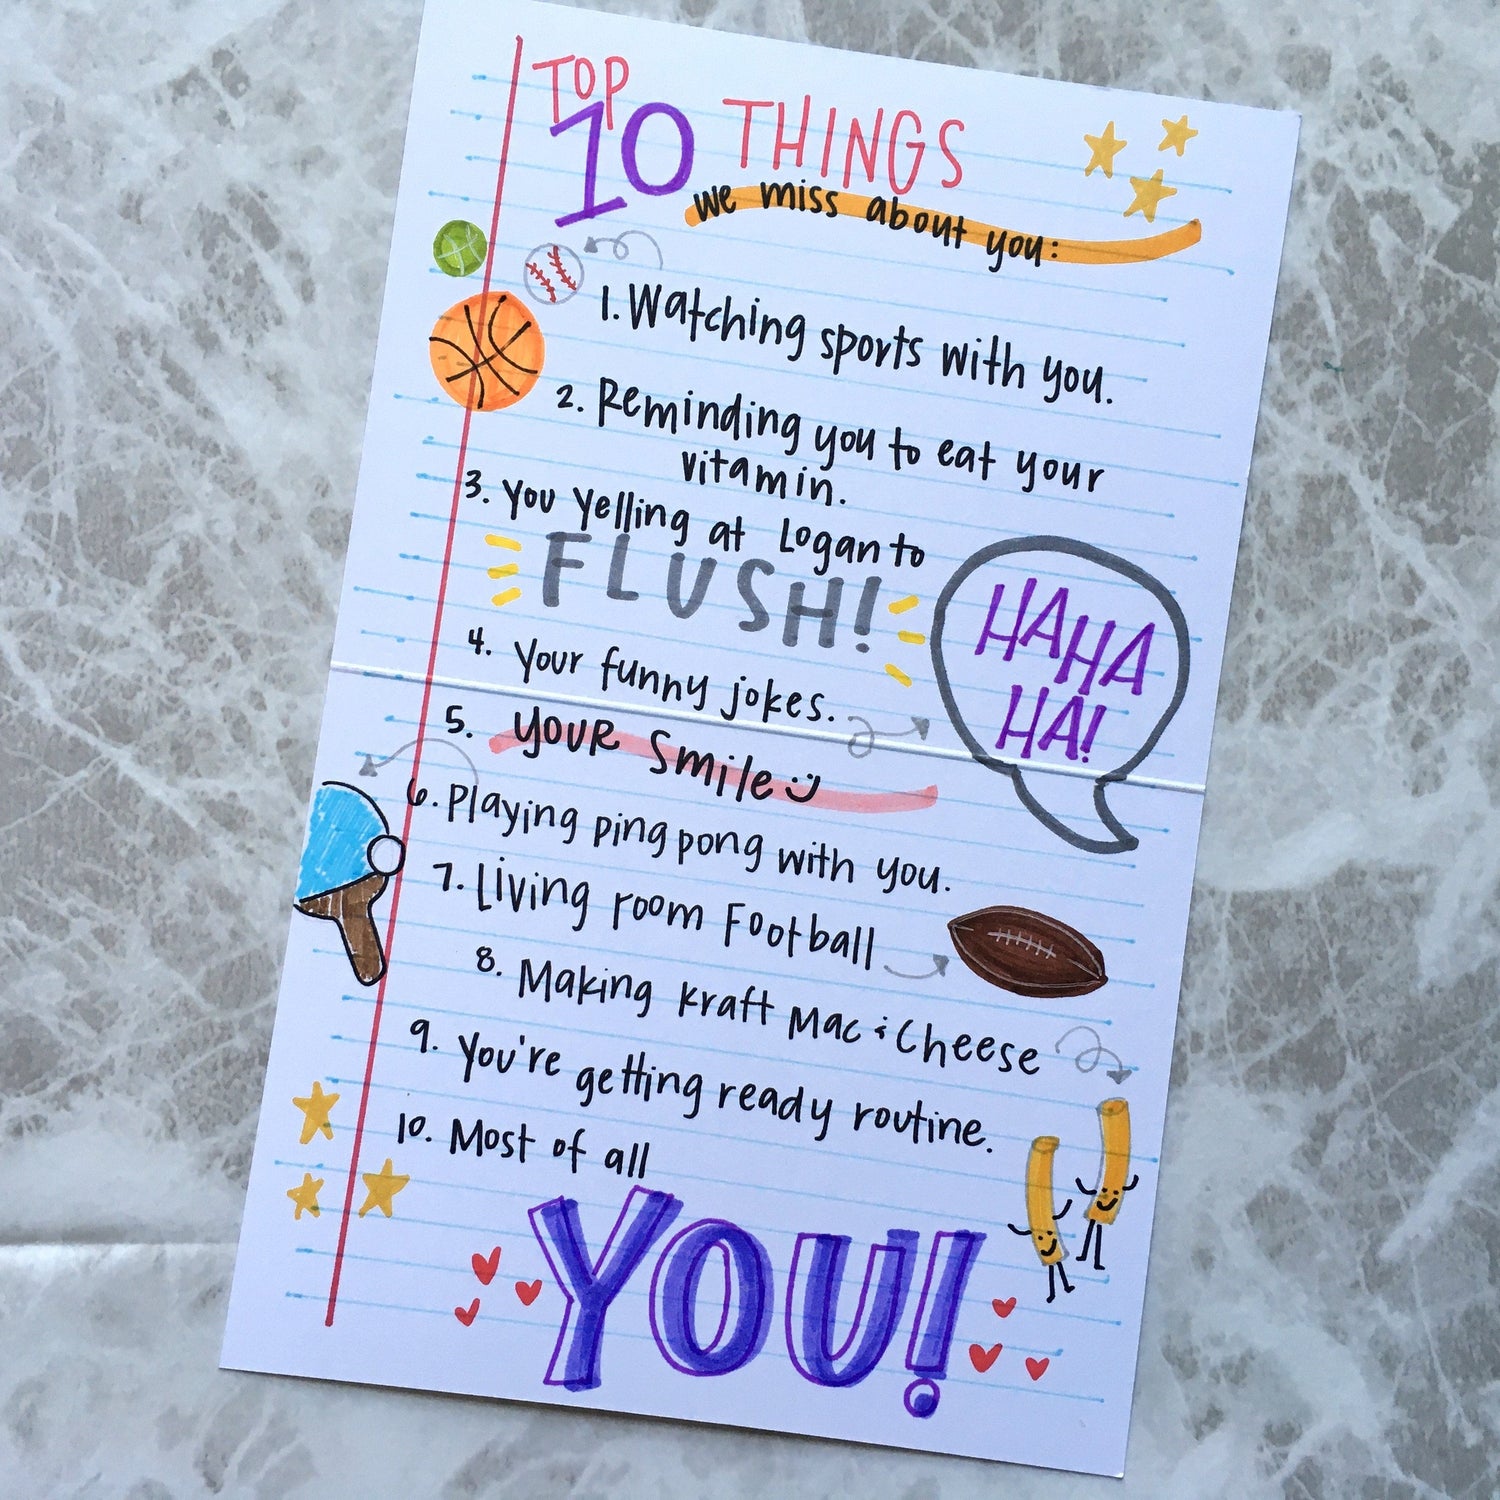 TOP
10 THINGS
we miss about you:
1. Watching sports with you.
2. Reminding you to eat your
vitamin.
3. You Yelling at Logan to
FLUSH!
4. Your funny jokes.
HAHA
HA!
5. YOUR Smile
6. Playing ping pong with you.
7. Living room Football
8. Making Kraft Mac & Cheese
9. You're getting ready routine.
10. Most of all
YOU!